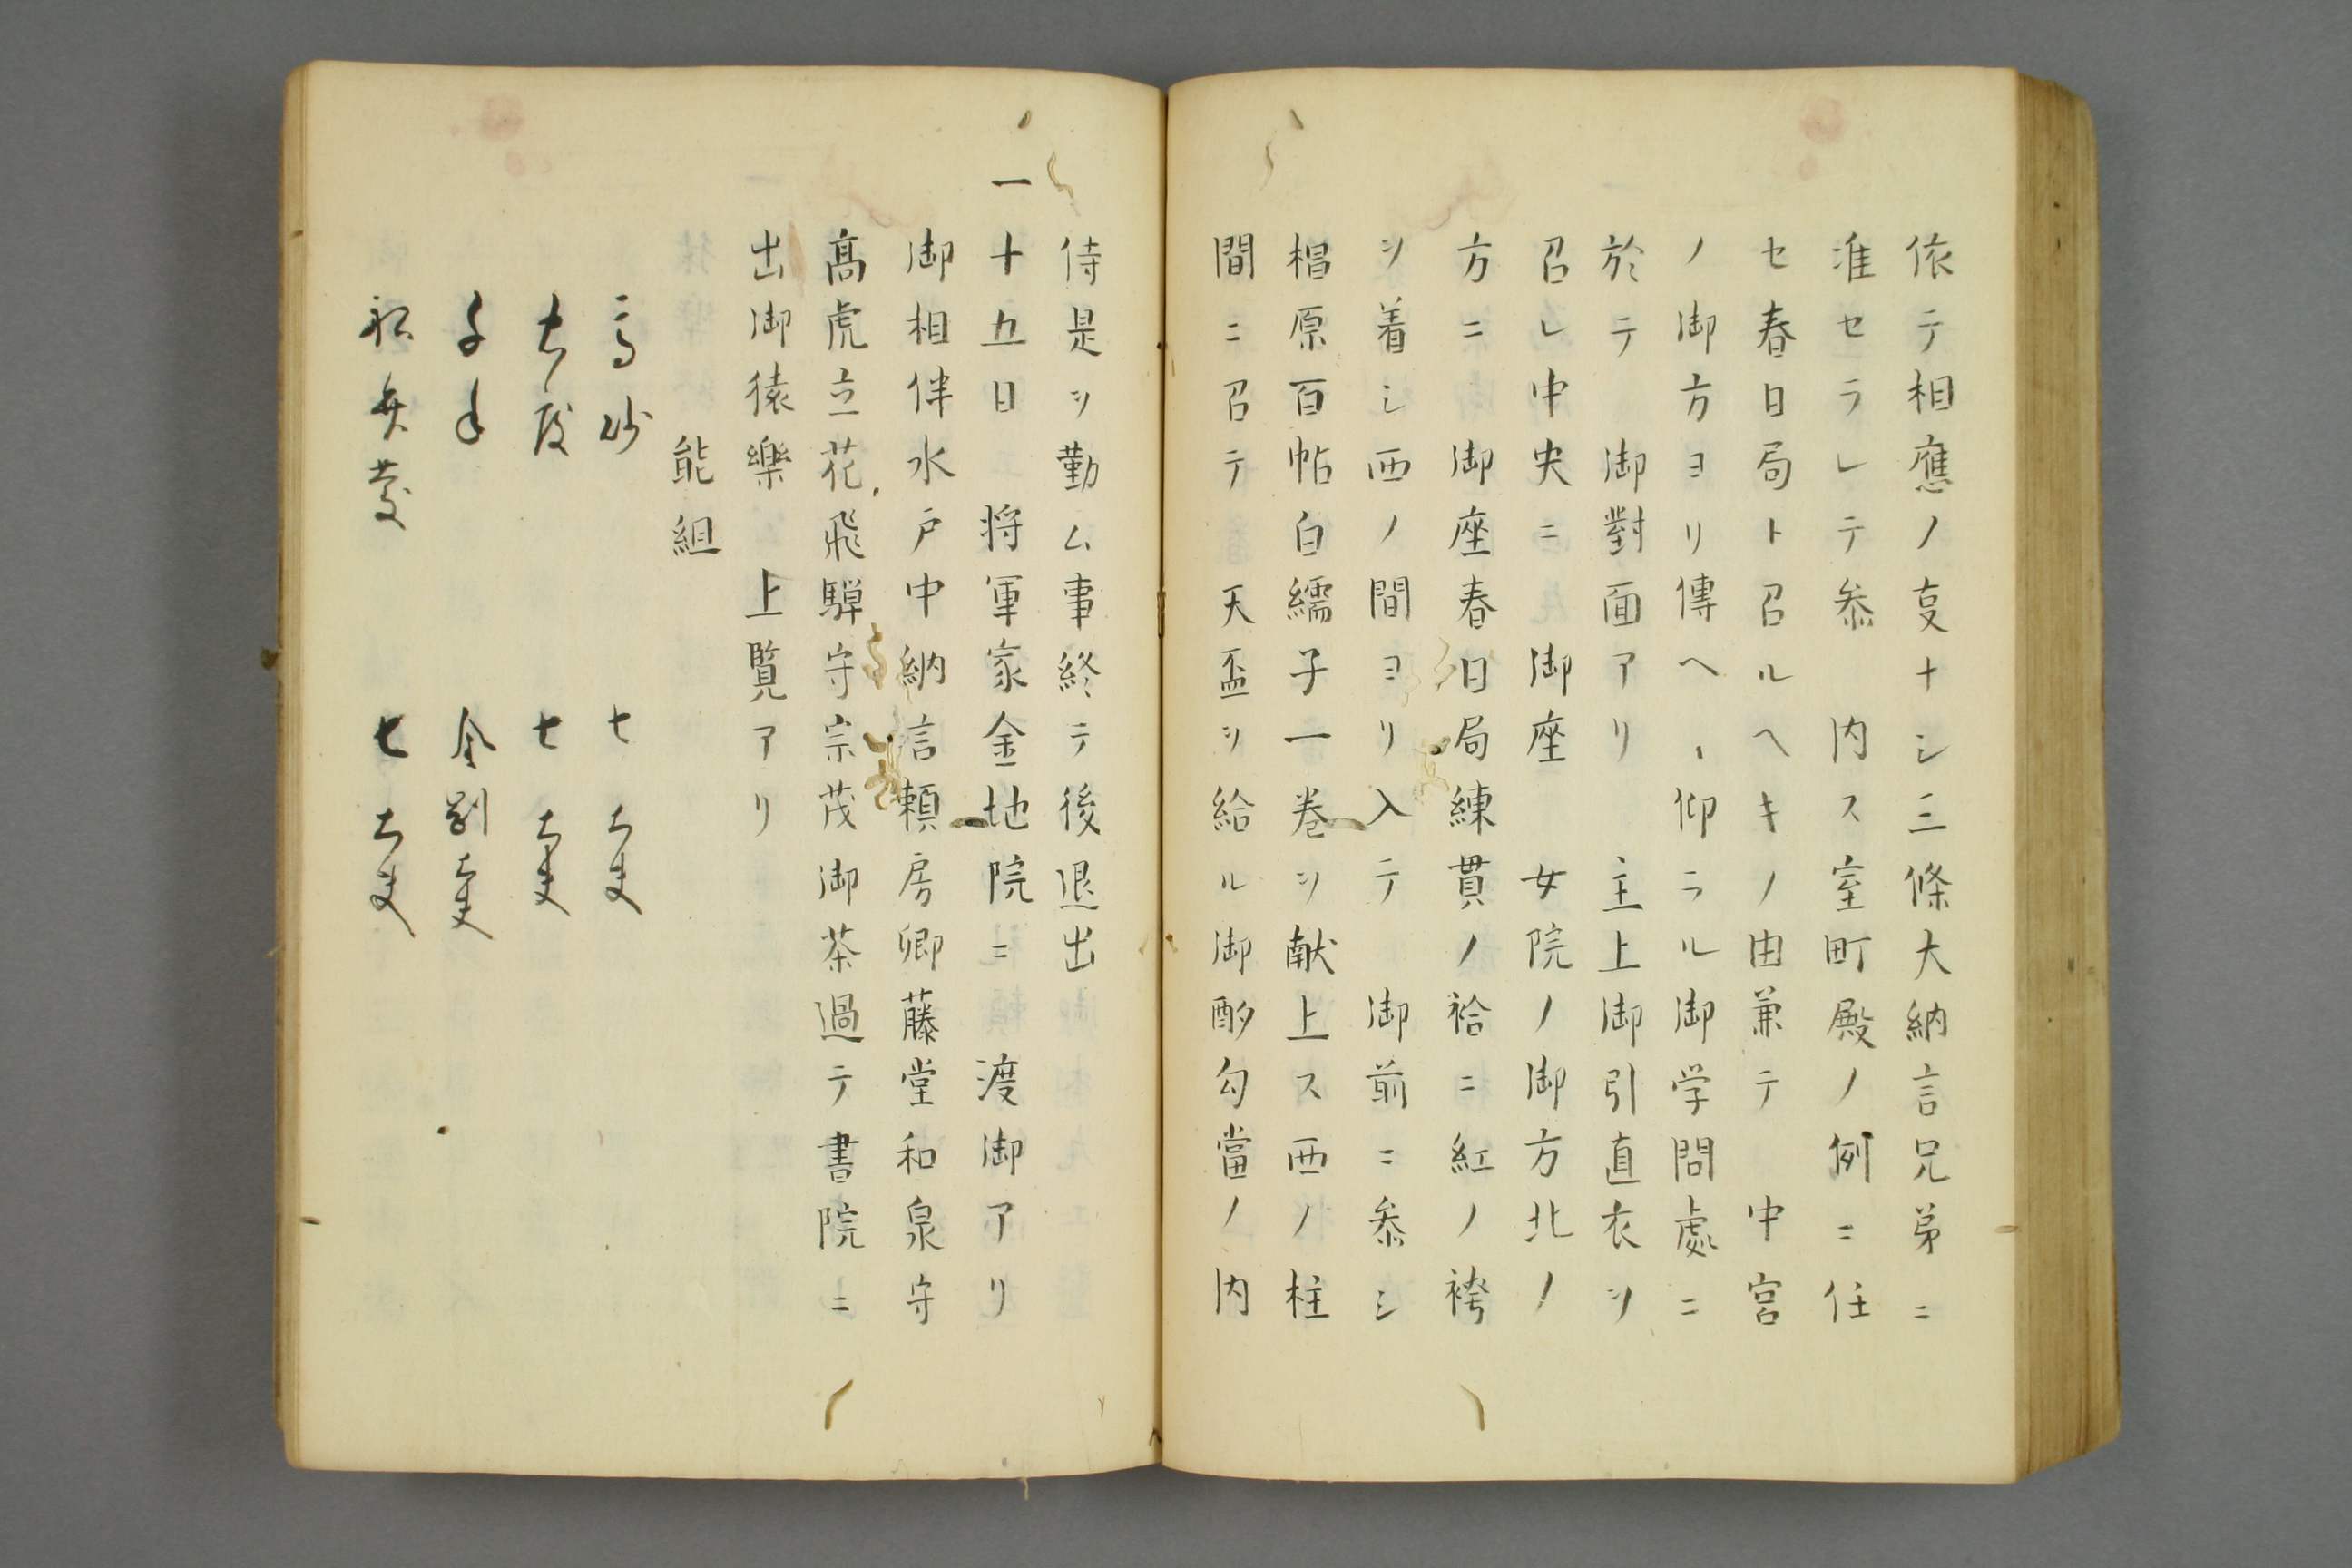 依テ相應ノ㕝ナシ三條大納言兄弟ニ
准セラレテ叅 内ス室町殿ノ例ニ任
セ春日局ト召ルヘキノ由兼テ 中宮
ノ御方ヨリ傳ヘ、仰ラル御学問處ニ
於テ 御對面アリ 主上御引直衣ヲ
召レ中央ニ 御座 女院ノ御方北ノ
方ニ 御座春日局練貫ノ袷ニ紅ノ袴
ヲ着シ西ノ間ヨリ入テ 御前ニ叅シ
椙原百帖白繻子一巻ヲ献上ス西ノ柱
間ニ召テ 天盃ヲ給ル御酌勾當ノ内
侍是ヲ勤ム事終テ後退出
一十五日 将軍家金地院ニ 渡御アリ
御相伴水戸中納言頼房卿藤堂和泉守
髙虎立花飛騨守宗茂御茶過テ書院ニ
出御猿樂 上覧アリ
能組
高砂 七太夫
七太夫
千手 金剛太夫
祝言養 七太夫